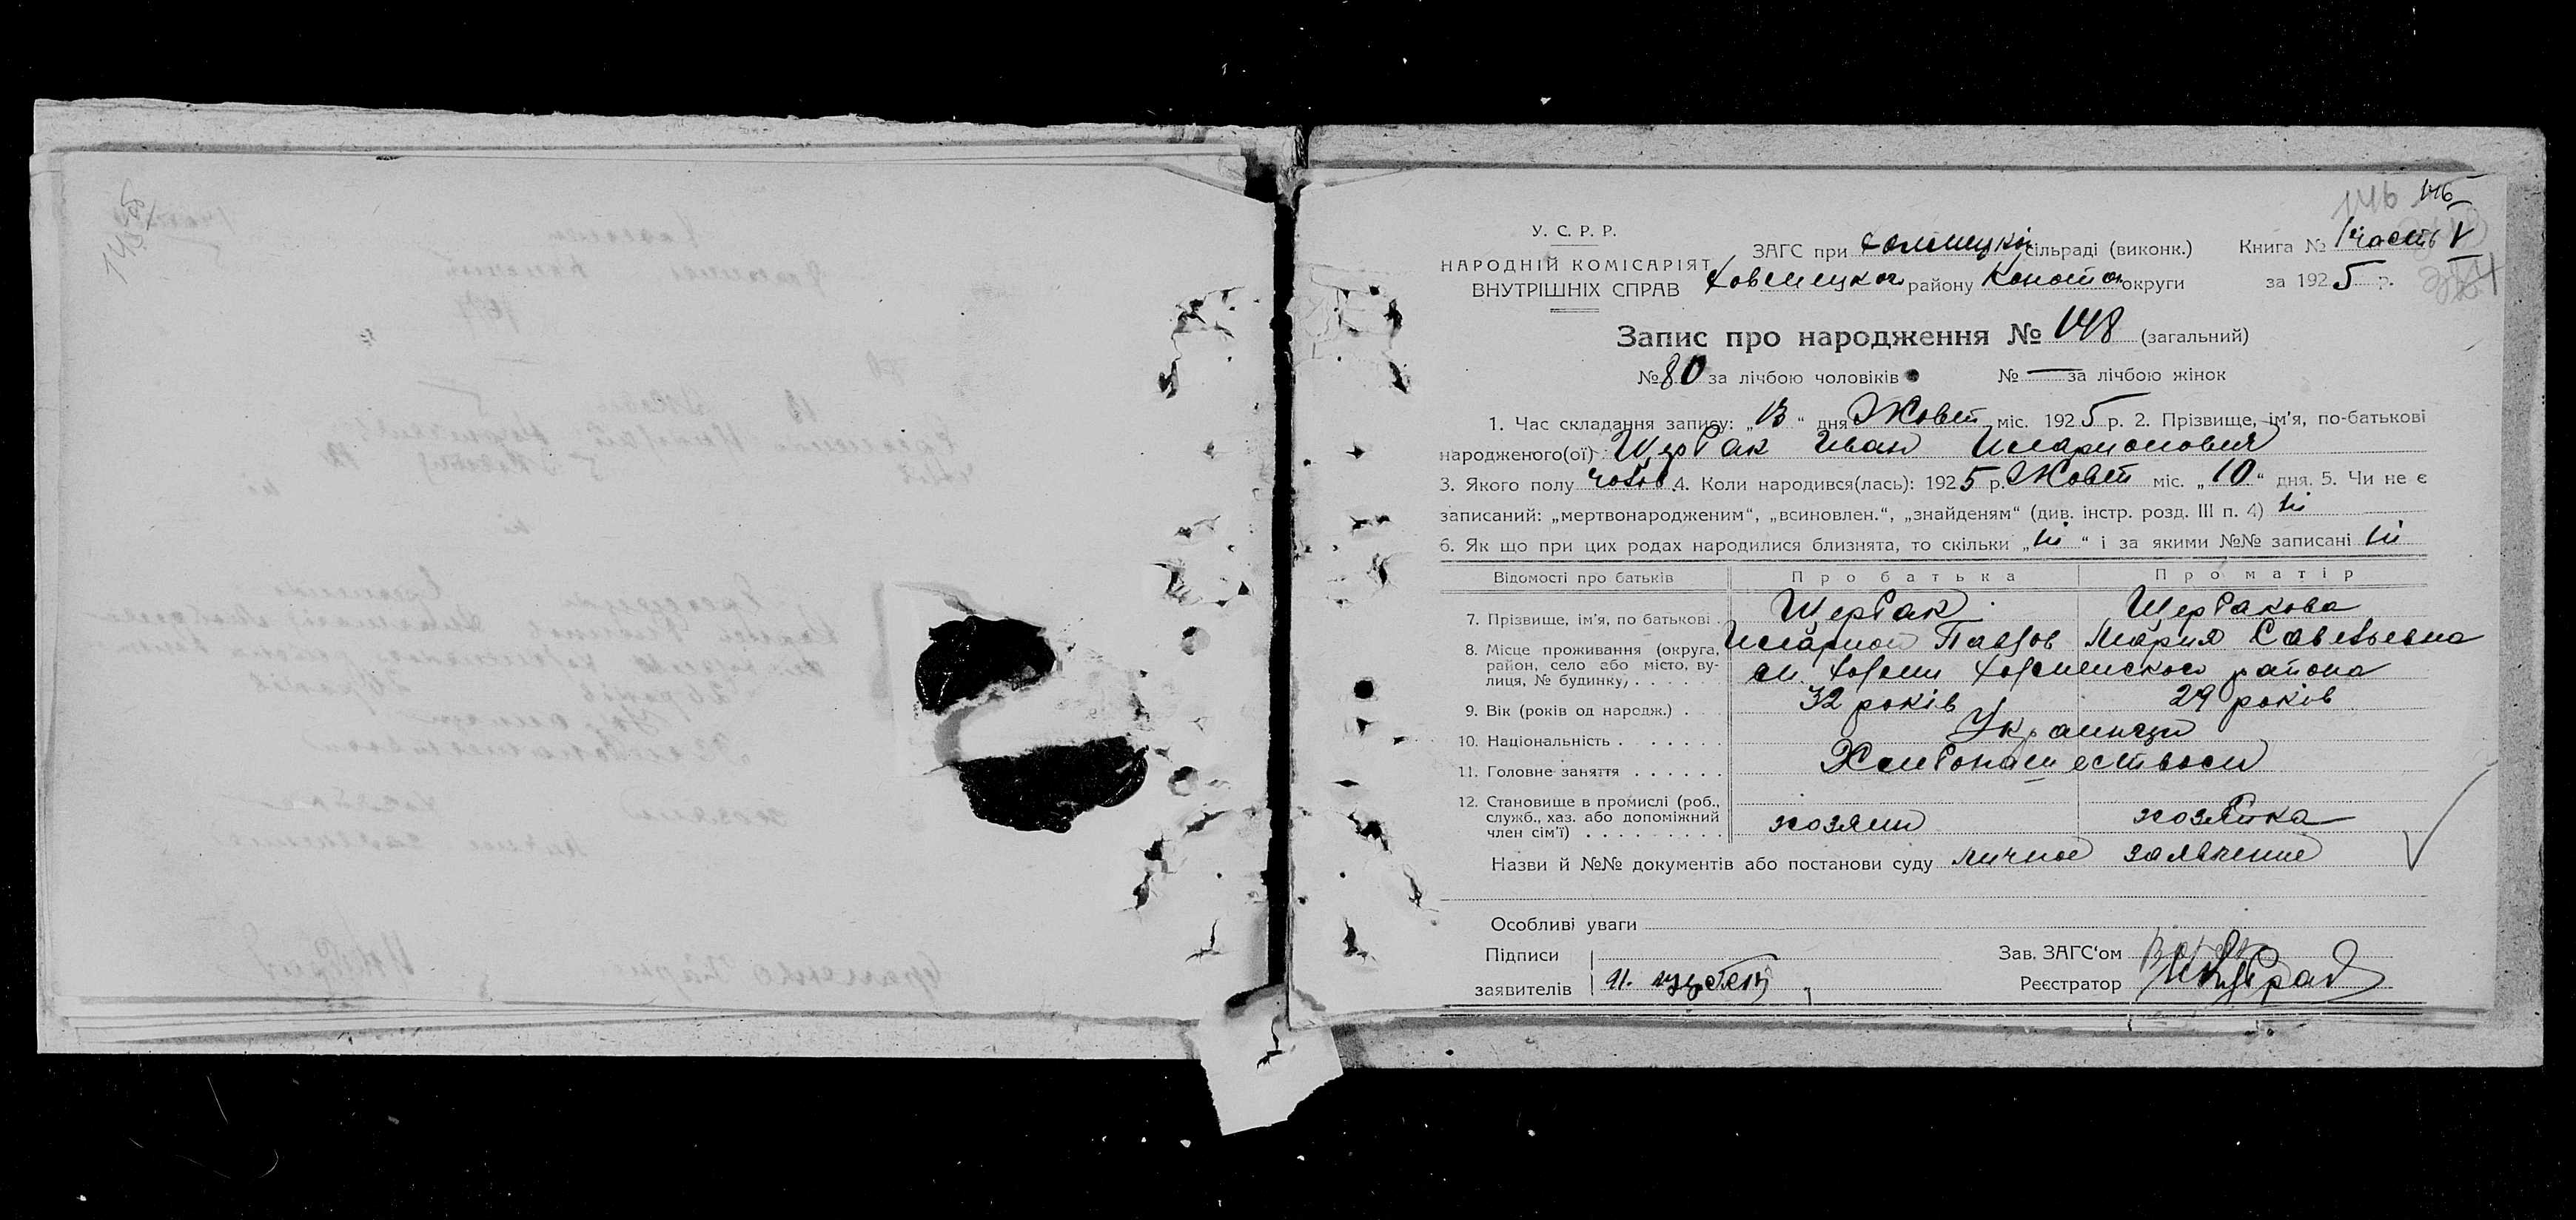 146 146
У. С. Р. Р.
НАРОДНІЙ КОМІСАРІЯТ
ВНУТРІШНІХ СПРАВ
ЗАГС при сільраді (виконк.) Книга № 1 часть V
району Конотоп округи за 1925 р.
Запис про народження № 148 (загальний)
№ 80 за лічбою чоловіків № — за лічбою жінок
1. Час складання запису: „13“ дня Жовт міс. 1925 р. 2. Прізвище, ім'я, по-батькові
народженого(ої) Щербак Иван Иларионович
3. Якого полу чолов. 4. Коли народився(лась): 1925 р. Жовт міс. „10“ дня. 5. Чи не є
записаний: „мертвонародженим“, „всиновлен.“, „знайденям“ (див. інстр. розд. III п. 4) Ні
6. Як що при цих родах народилися близнята, то скільки „Ні“ і за якими №№ записані Ні
Відомості про батьків Про батька Про матір
7. Прізвище, ім'я, по батькові . Щербак Щербакова
Иларион Павлов Мария Савельевна
8. Місце проживання (округа, район, село або місто, вулиця, № будинку) района
9. Вік (років од народж.) . 32 років 29 років
10. Національність . . . . . . Украинцы
11. Головне заняття . . . . . . Хлебопашеством
12. Становище в промислі (роб., служб., хаз. або допоміжний член сім'ї) . . . . . . . . хозяин хозяйка
Назви й №№ документів або постанови суду личное заявление
Особливі уваги
Підписи
заявителів И. Щербак
Зав. ЗАГС'ом
Реєстратор